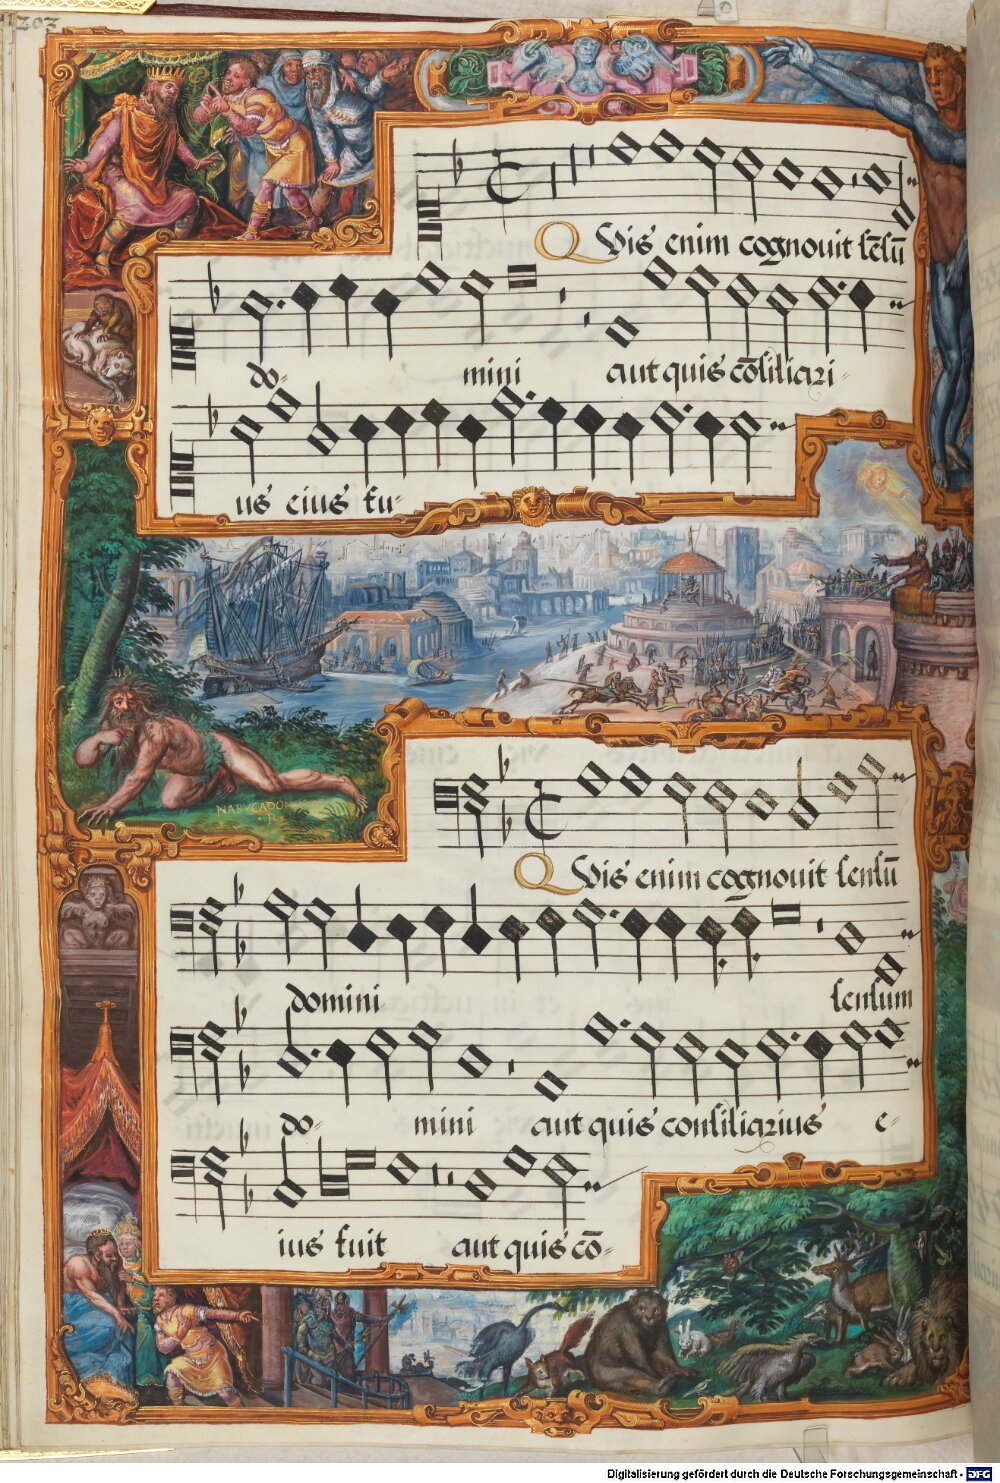 202
Qvis enim cognouit sēsū
do- mini aut quis cōsiliari-
us eius fu-
NABVCADONO
Qvis enim cognouit sensū
domini sensum
do- mini aut quis consiliarius e-
ius fuit aut quis cō-
Digitalisierung gefördert durch die Deutsche Forschungsgemeinschaft - DFG